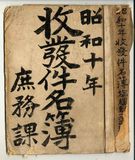 昭和十年
收發件名簿
庶務課
昭和十年收發件名簿